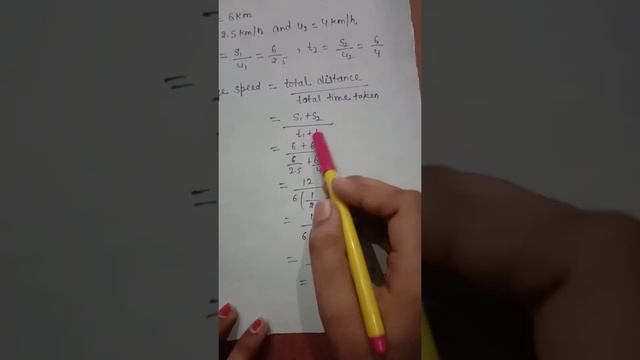 = 6 km
2.5 km/h and u₂ = 4 km/h.
= S₁/u₁ = 6/2.5 , t₂ = S₂/u₂ = 6/4
speed = total distance / total time taken
= S₁ + S₂ / t₁ +
= 6 + 6 / 6/2.5 + 6/4
= 12 / 6(1/2
= 1 / 6(
=
=